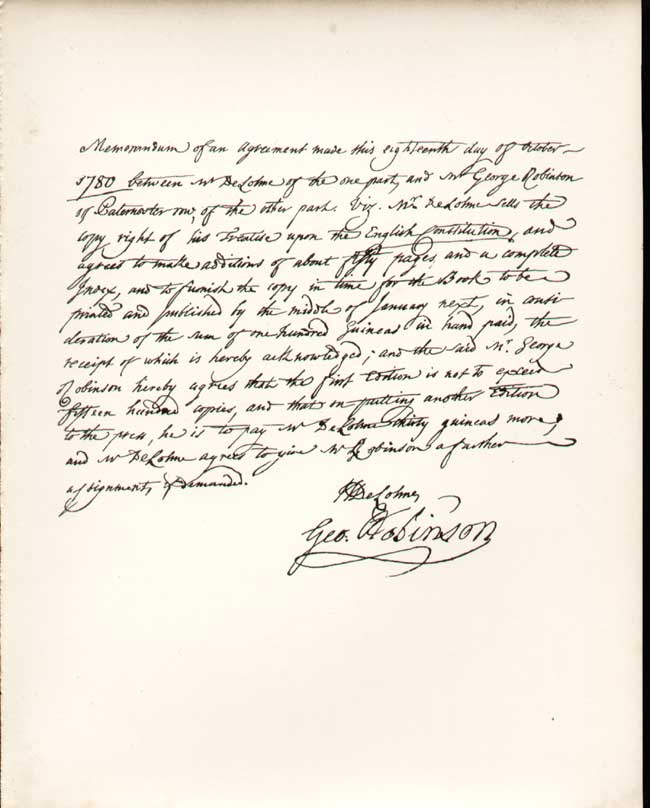 Memorandum of an Agreement made this eighteenth day of October
1780 between Mr DeLolme of the one part, and Mr George Robinson
of Paternoster row, of the other part. Viz. Mr. DeLolme sells the
copy right of his Treatise upon the English Constitution, and
agrees to make additions of about fifty pages, and a complete
Index, and to furnish the copy in time for the Book to be
printed and published by the middle of January next, in consi-
deration of the sum of one hundred Guineas in hand paid, the
receipt of which is hereby acknowledged; and the said Mr. George
Robinson hereby agrees that the first Edition is not to exceed
fifteen hundred copies, and that on putting another Edition
to the press, he is to pay Mr DeLolme thirty guineas more;
and Mr DeLolme agrees to give Mr Robinson a further
assignment, if demanded.
DeLolme,
Geo. Robinson